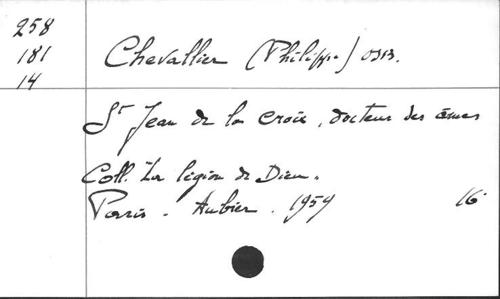 258
181
14
Chevallier (Philippe) OSB.
St Jean de la Croix, docteur des âmes
Coll. "La légion de Dieu"
Paris - Aubier. 1959 16°